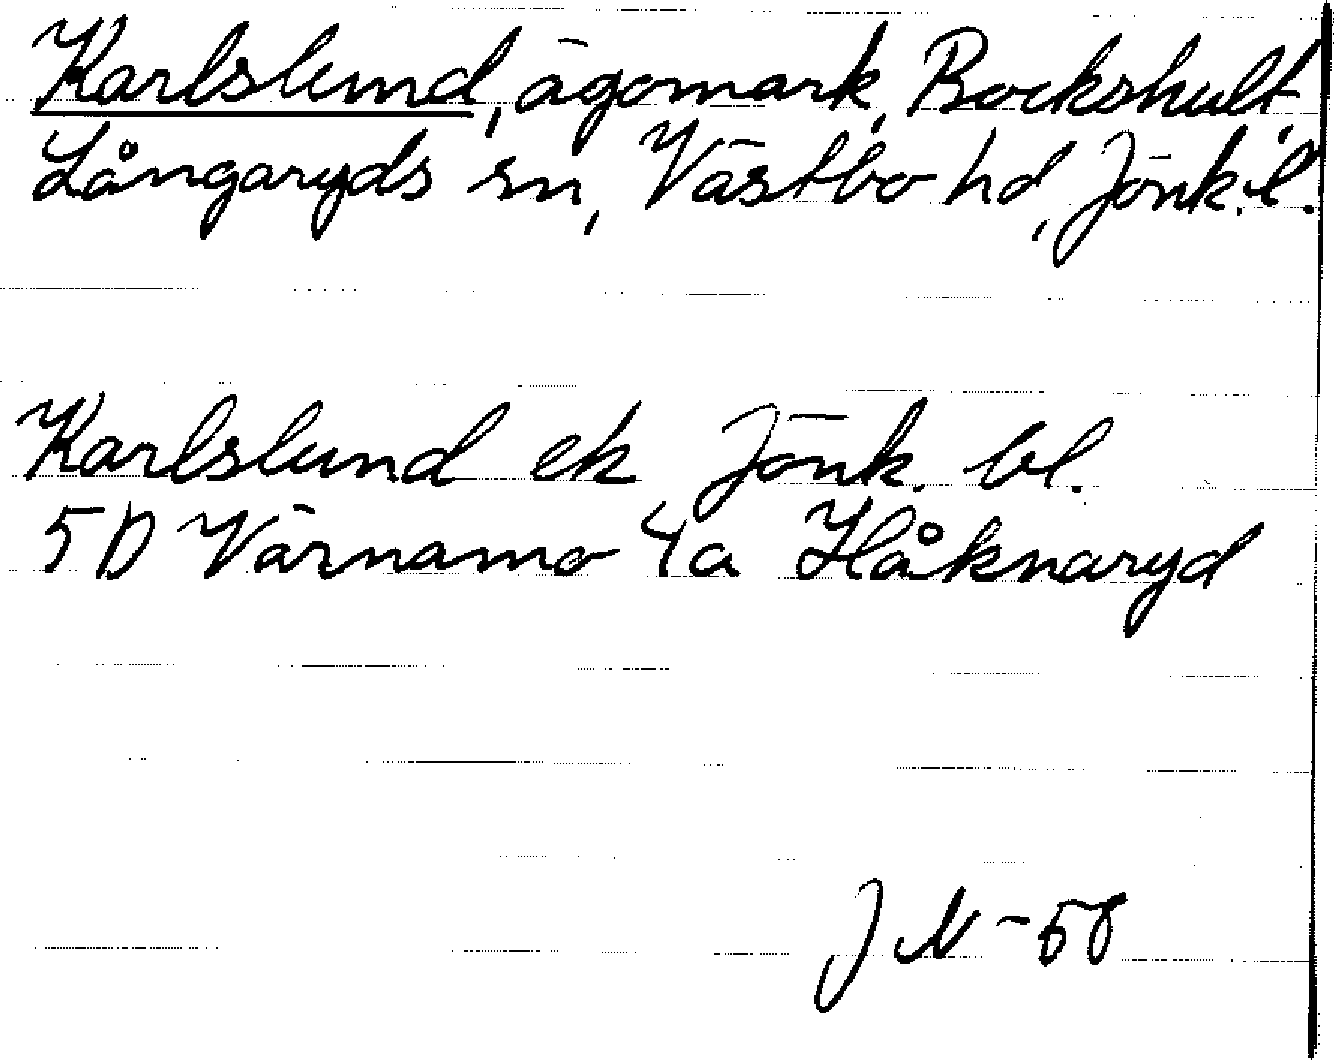 Karlslund, ägomark, Bockshult,
Långaryds sn, Västbo hd, Jönk.l.
Karlslund ek Jönk. bl.
5D Värnamo 4a Håknaryd